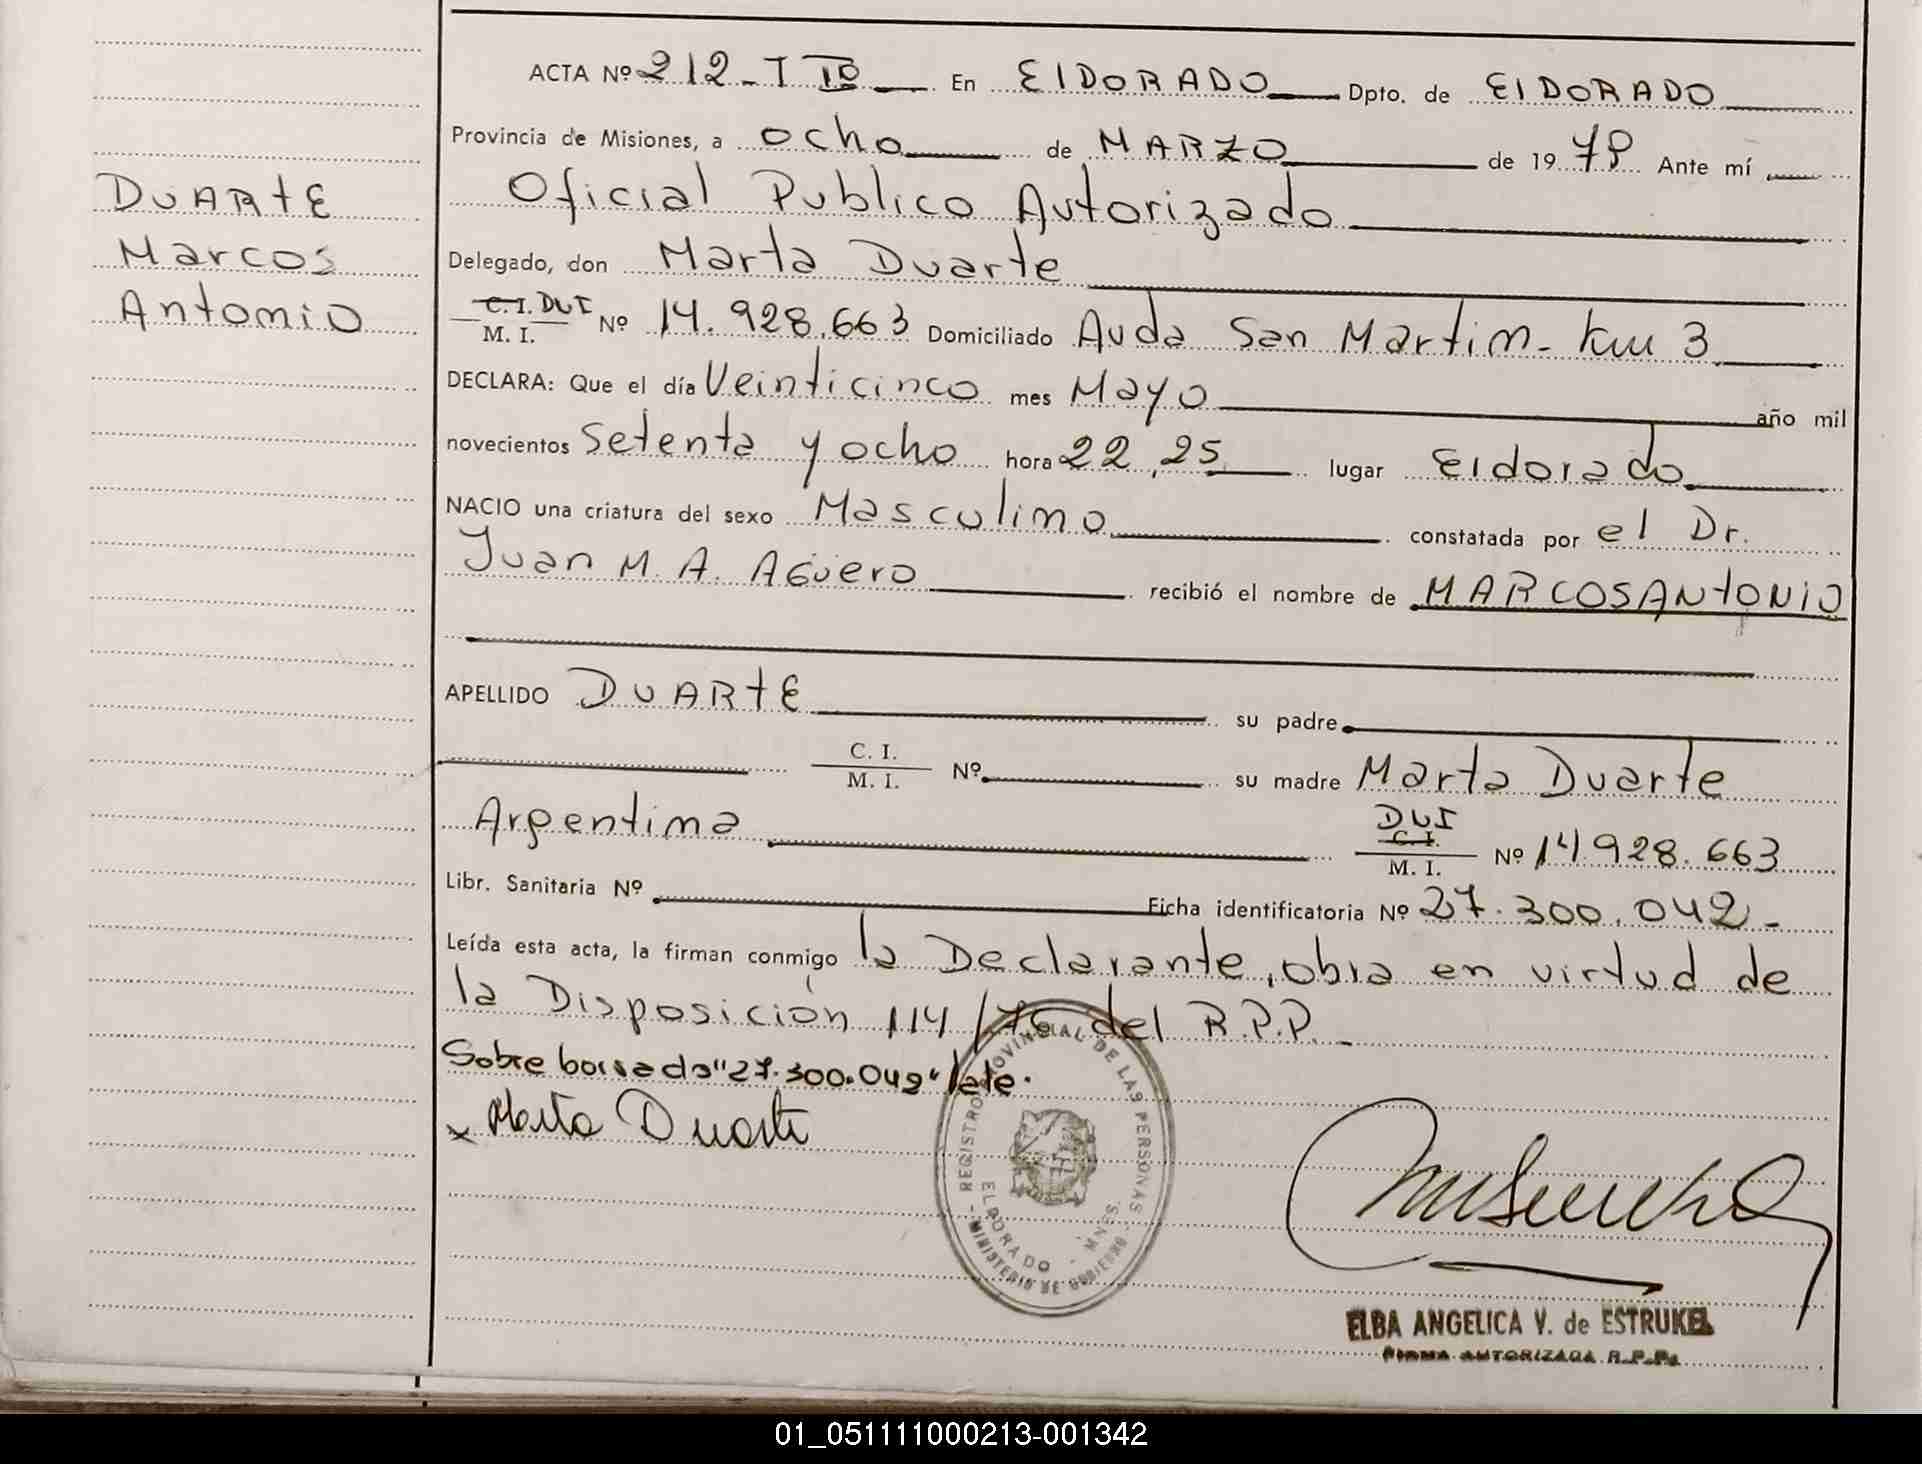 ACTA Nº 212-T IIº En ElDORADO Dpto. de ElDORADO
Provincia de Misiones, a ocho de MARZO de 19 79 Ante mí
Oficial Publico Autorizado
DUARTE
Marcos
Antonio
Delegado, don Marta Duarte
C. I. DUI
M. I. Nº 14.928.663 Domiciliado Avda San Martin - Km 3
DECLARA: Que el día Veinticinco mes Mayo año mil
novecientos Setenta y ocho hora 22,25 lugar Eldorado
NACIO una criatura del sexo Masculino constatada por el Dr.
Juan M. A. Agüero recibió el nombre de MARCOS ANTONIO
APELLIDO DUARTE su padre
C. I.
M. I. Nº su madre Marta Duarte
Argentina DUI C. I.
M. I. Nº 14.928.663
Libr. Sanitaria Nº Ficha identificatoria Nº 27.300.042-
Leída esta acta, la firman conmigo la Declarante, obra en virtud de
la Disposición 114/76 del R.P.P.-
Sobre borrado "27.300.042" Vale.
x Marta Duarte
REGISTRO PROVINCIAL DE LAS PERSONAS
ELDORADO - MNES.
- MINISTERIO DE GOBIERNO -
ELBA ANGELICA V. de ESTRUKEL
FIRMA AUTORIZADA R.P.Ps
01_051111000213-001342